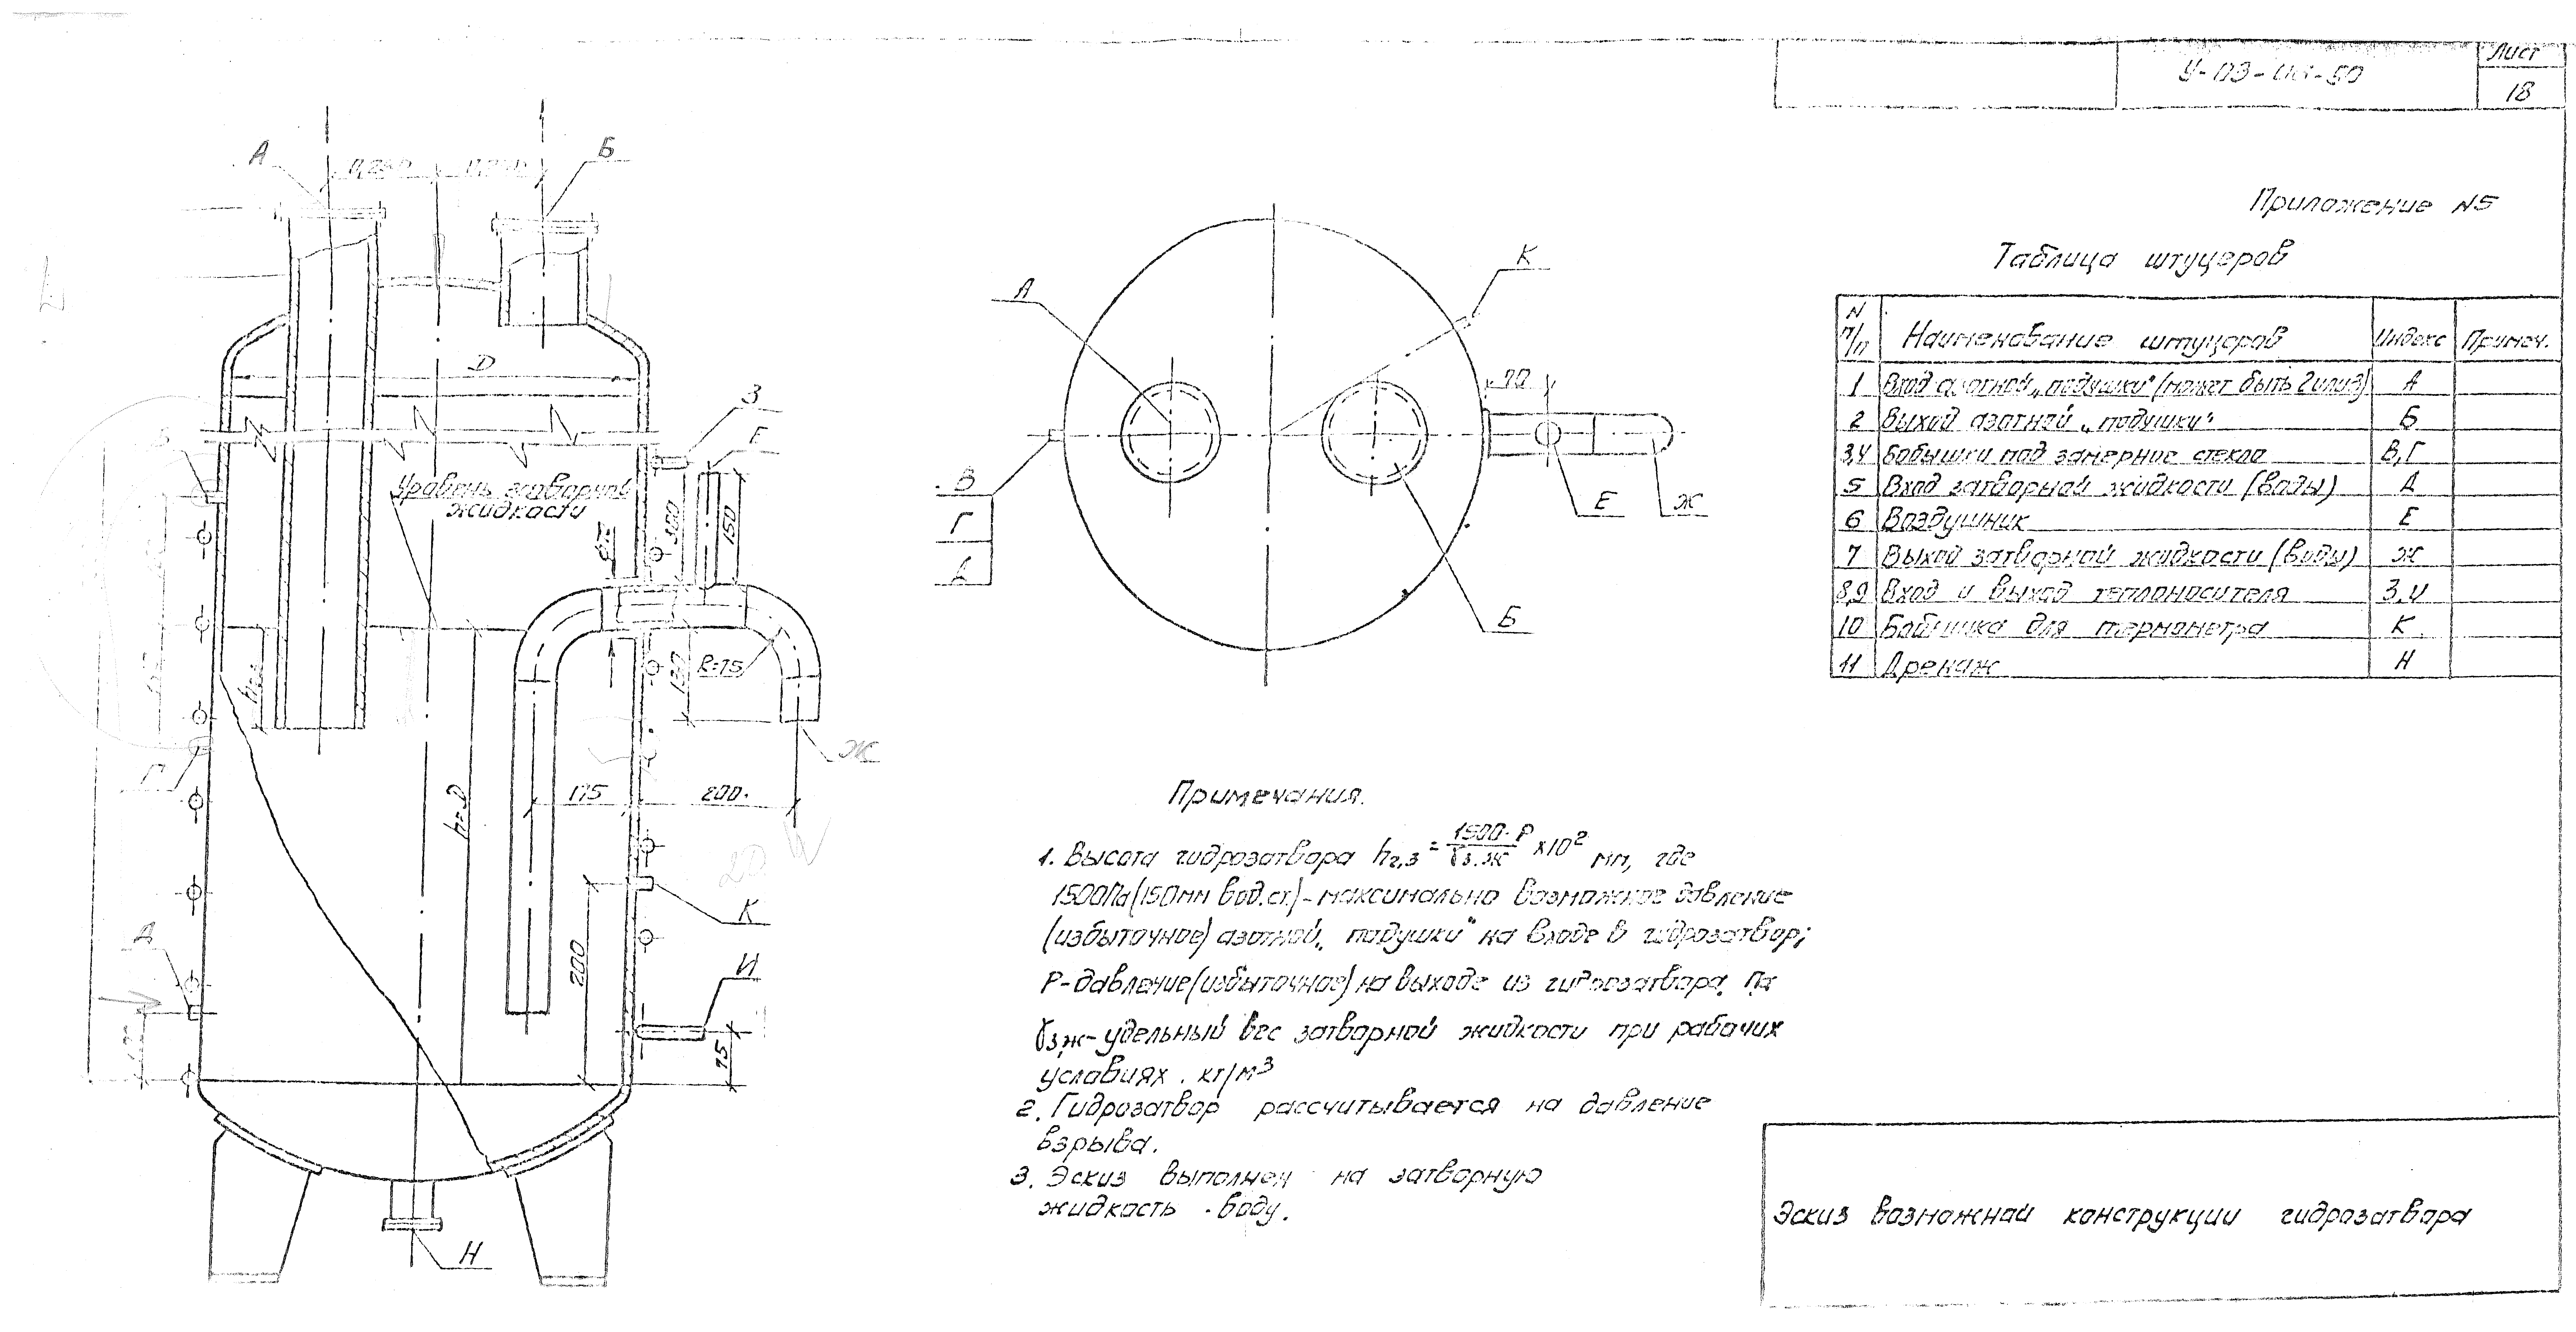 Лист
У-03-
-50
18
Приложение N5
Таблица штуцеров
N п/п Наименование штуцеров Индекс Примеч.
1 Вход азотной „подушки" (может быть 2 или 3) А
2 Выход азотной „подушки" Б
3,4 Бобышки под замерные стекла В,Г
5 Вход затворной жидкости (воды) Д
6 Воздушник Е
7 Выход затворной жидкости (воды) Ж
8,9 Вход и выход теплоносителя З,И
10 Бобышка для термометра К
11 Дренаж Н
А
Б
D
З
Е
Уровень затворной
жидкости
300
150
R=75
Ж
Г
h=D
175
200
К
Д
200
И
75
Н
А
К
70
В
Г
Д
Е
Ж
Б
Примечания.
1. Высота гидрозатвора hг.з = 1500-Р / γз.ж ×10² мм, где
1500Па (150мм вод.ст.) - максимально возможное давление
(избыточное) азотной „подушки" на входе в гидрозатвор;
Р-давление (избыточное) на выходе из гидрозатвора, Па
γз.ж-удельный вес затворной жидкости при рабочих
условиях, кг/м³
2. Гидрозатвор рассчитывается на давление
взрыва.
3. Эскиз выполнен на затворную
жидкость - воду.
Эскиз возможной конструкции гидрозатвора